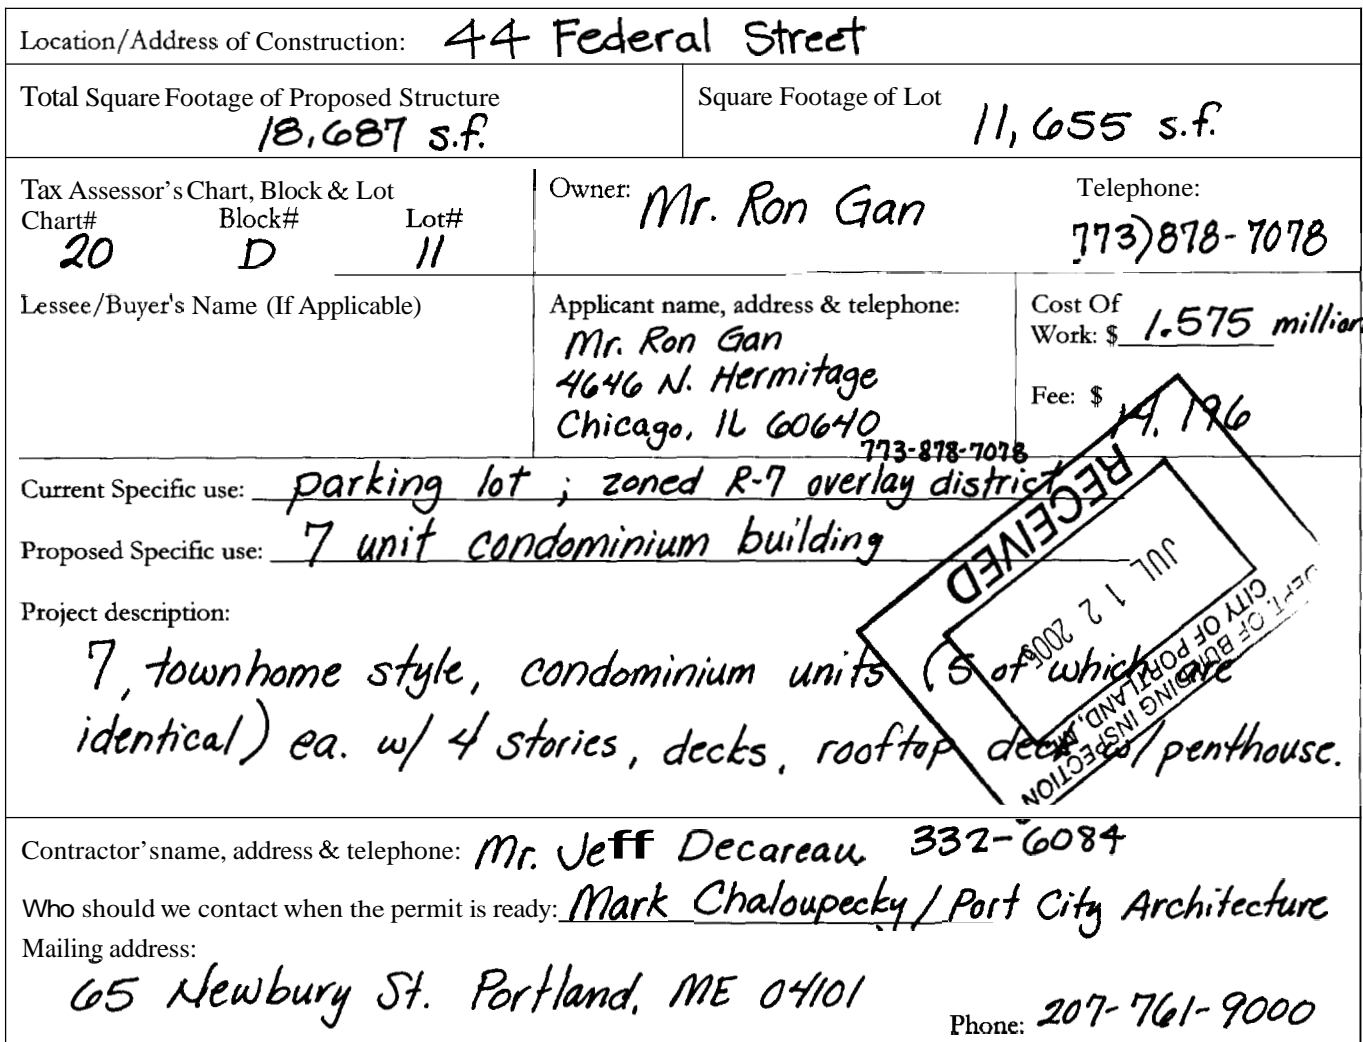 Location/Address of Construction: 44 Federal Street
Total Square Footage of Proposed Structure
18,687 s.f.
Square Footage of Lot
11,655 s.f.
Tax Assessor's Chart, Block & Lot
Chart# Block# Lot#
20 D 11
Owner: Mr. Ron Gan
Telephone:
773)878-7078
Lessee/Buyer's Name (If Applicable)
Applicant name, address & telephone:
Mr. Ron Gan
4646 N. Hermitage
Chicago, IL 60640
773-878-7078
Cost Of
Work: $ 1.575 million
Fee: $ 14,196
Current Specific use: parking lot ; zoned R-7 overlay district
Proposed Specific use: 7 unit condominium building
RECEIVED
JUL 12 2005
DEPT. OF BUILDING INSPECTION
CITY OF PORTLAND, ME
Project description:
7, townhome style, condominium units (5 of which are
identical) ea. w/ 4 stories, decks, rooftop deck w/ penthouse.
Contractor'sname, address & telephone: Mr. Jeff Decareau 332-6084
Who should we contact when the permit is ready: Mark Chaloupecky / Port City Architecture
Mailing address:
65 Newbury St. Portland, ME 04101
Phone: 207-761-9000